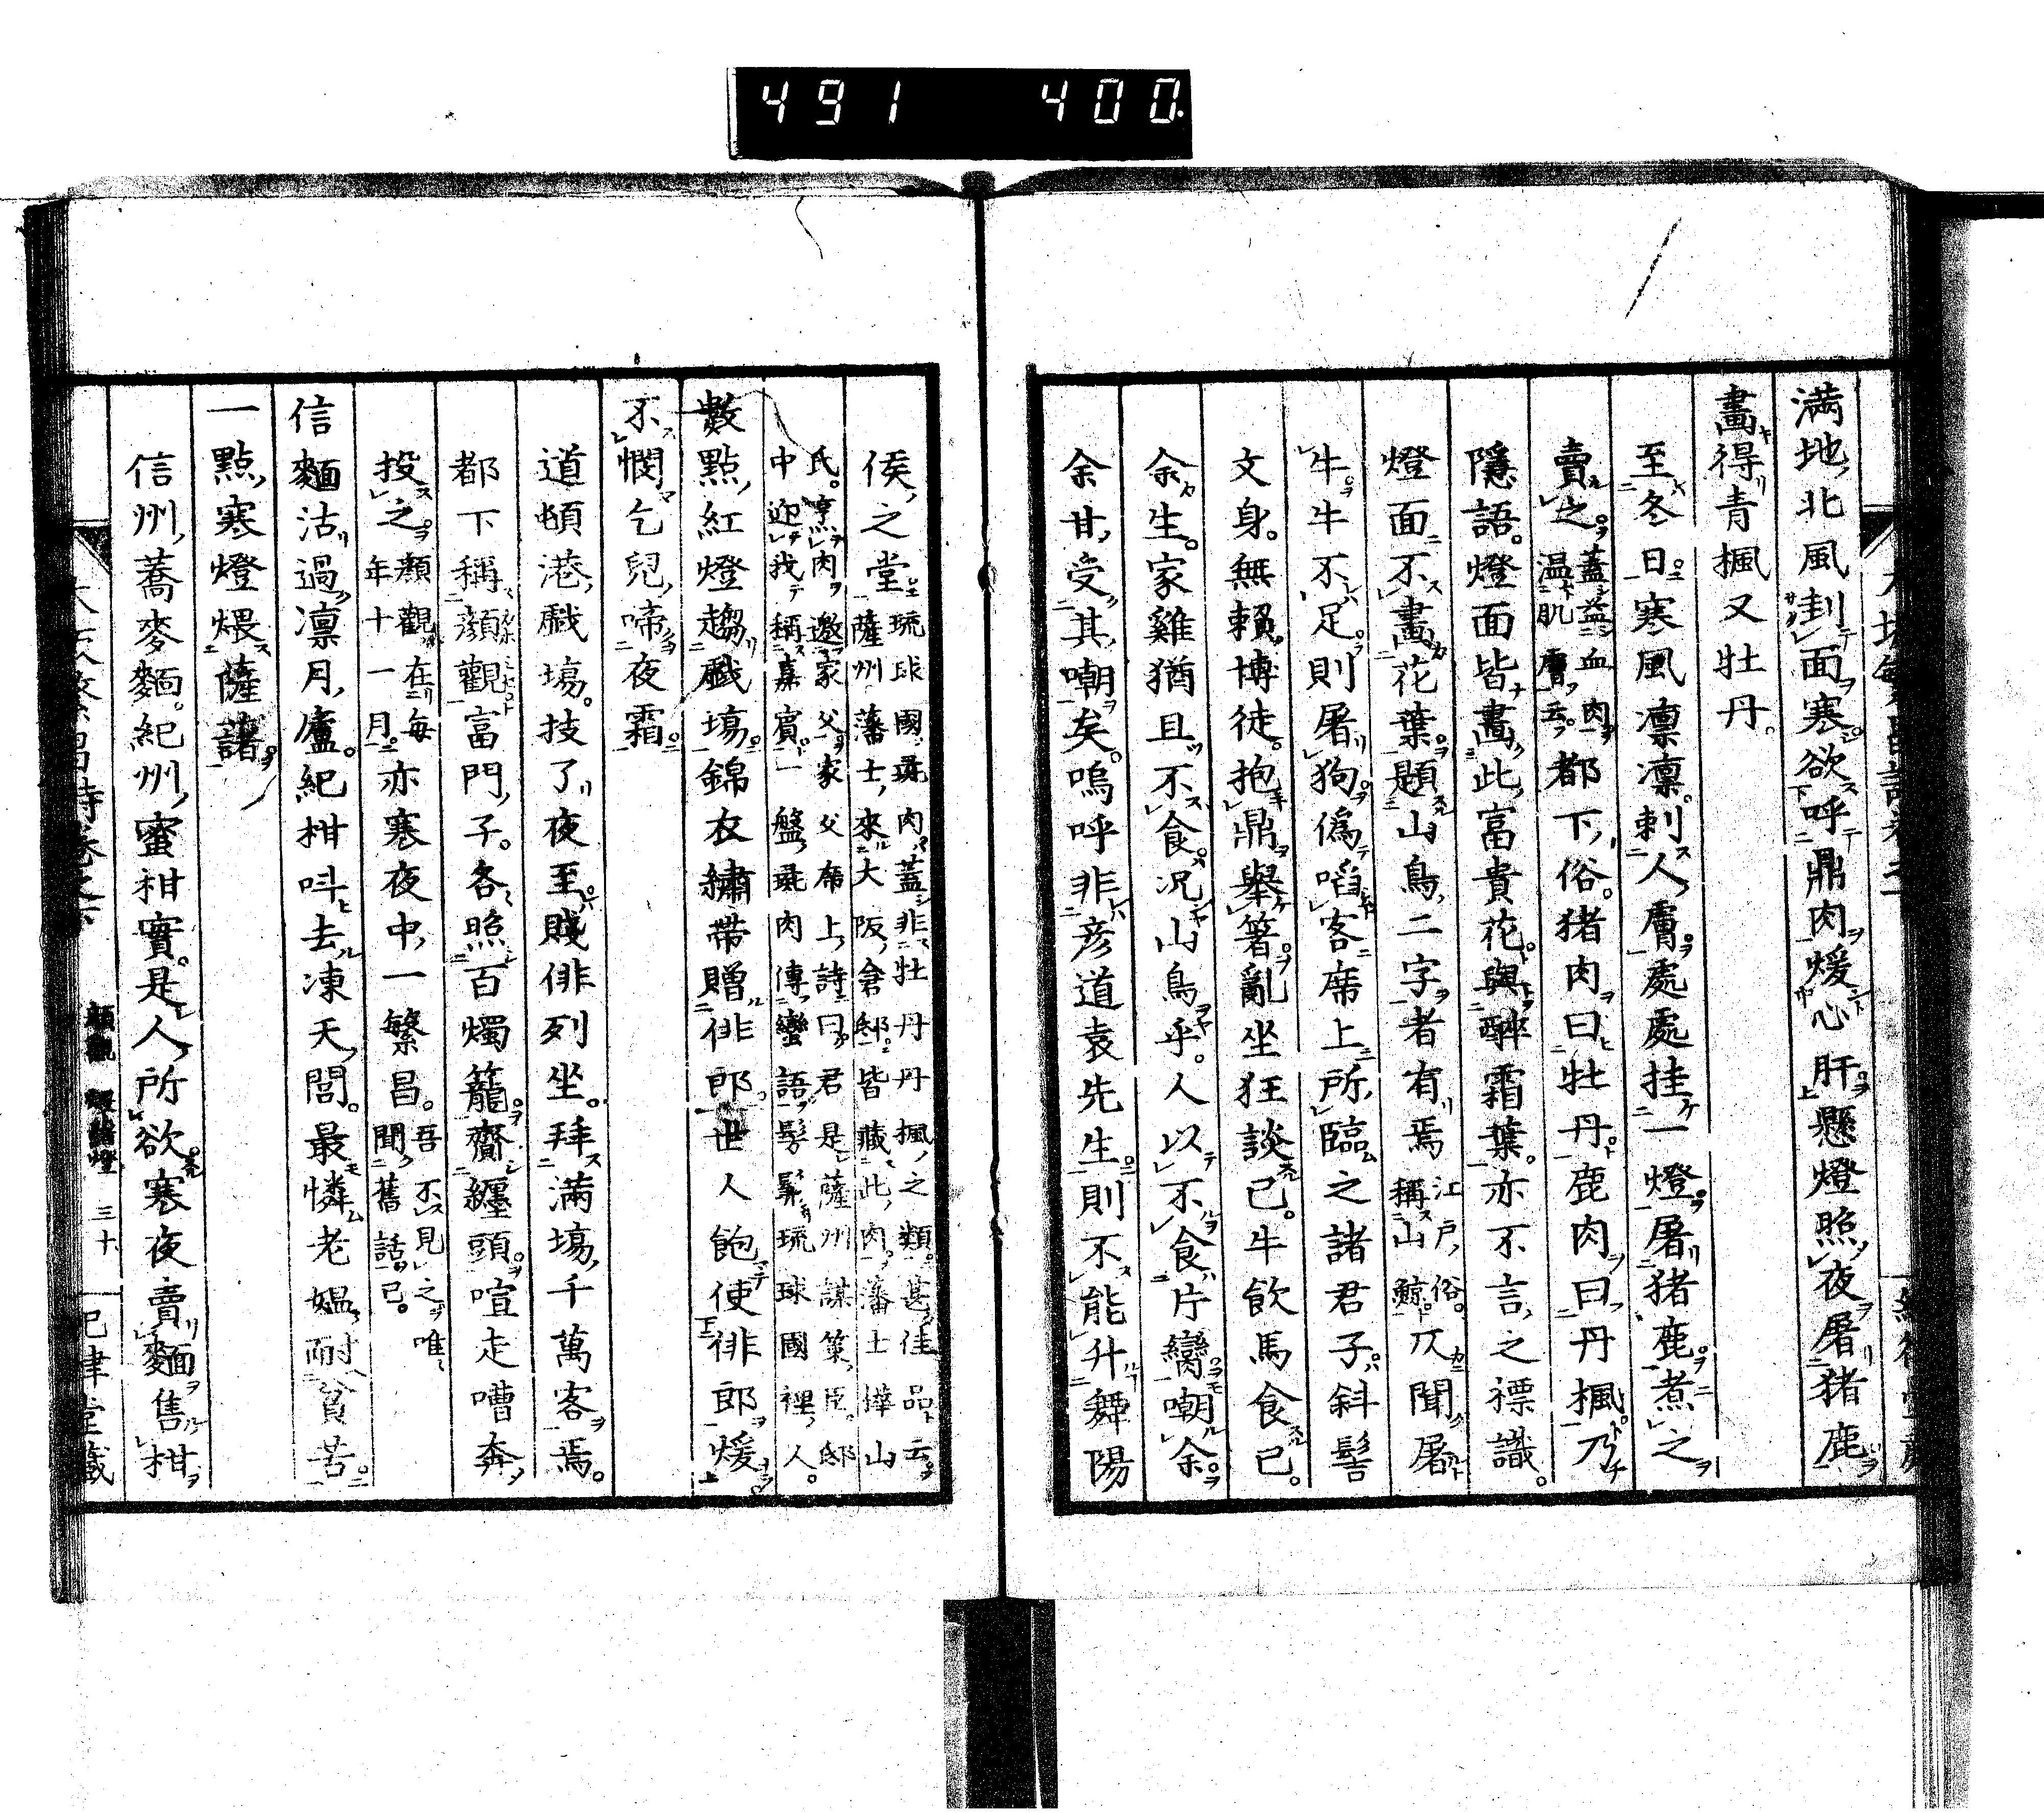 491 400
満地北風刲面寒欲呼鼎肉煖心肝懸燈照夜屠猪鹿
畫得青楓又牡丹。
至冬日寒風凛凛。刺人膚處處挂一燈屠猪鹿煮之
賣之蓋益血肉温肌膚云。都下俗。猪肉曰牡丹鹿肉曰丹楓乃
隱語。燈面皆畫此富貴花與醉霜葉。亦不言之標識。
燈面不畫花葉題山鳥二字者有焉江戸俗。稱山鯨。仄聞屠
牛牛不足則屠狗偽啗客席上所臨之諸君子斜髻
文身。無賴。博徒。抱鼎舉箸亂坐狂談已。牛飲馬食已。
余生。家雞猶且不食況山鳥乎。人以不食片臠嘲余。
余甘受其嘲矣。嗚呼非彦道袁先生則不能升舞陽
侯之堂琉球國彘肉蓋非牡丹丹楓之類甚佳品云薩州藩士來大阪倉邸皆藏此肉藩士蘀山
氏。烹肉邀家父家父席上詩曰君是薩州謀策臣。邸中迎我稱嘉賓一盤彘肉傳蠻語髣髴琉球國裡人。
數點紅燈趨戲塲。錦衣繡帶贈俳郎。世人飽使俳郎煖
不憫乞兒啼夜霜
道頓港戲塲。技了夜至賤俳列坐。拜滿塲千萬客焉。
都下稱顔觀富門子。各照百燭籠齎纏頭。喧走嘈奔
投之顔觀在毎年十一月。亦寒夜中一繁昌。吾不見之唯聞舊話已。
信麵沽過凛月廬。紀柑呌去凍天閭。最憐老媼耐貧苦。
一點寒燈煨薩藷。
信州蕎麥麵。紀州蜜柑實。是人所欲寒夜賣麵售柑
顔觀
三十